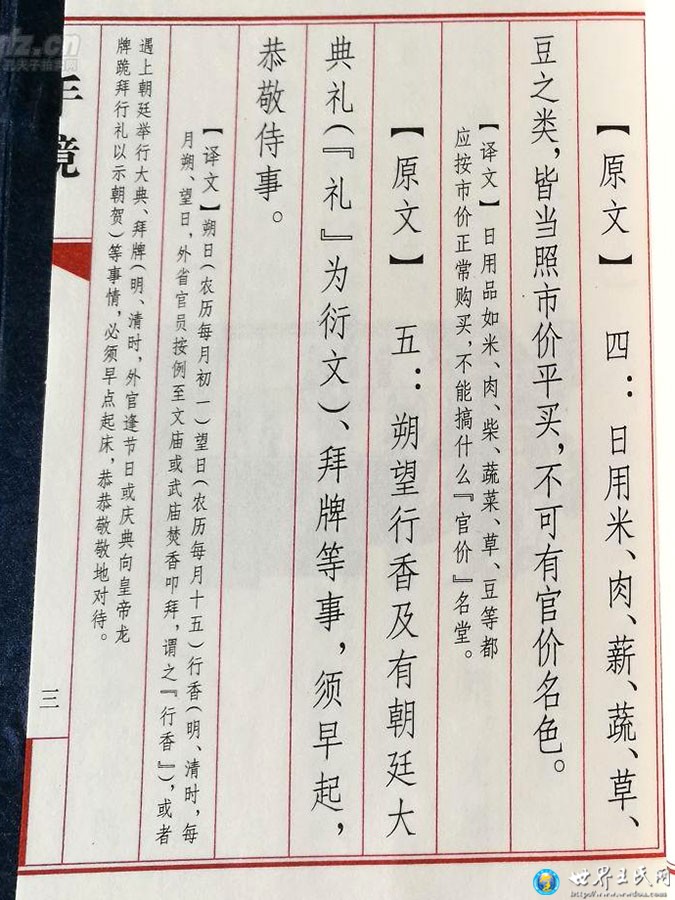 【原文】 四：日用米、肉、薪、蔬、草、
豆之类，皆当照市价平买，不可有官价名色。
【译文】日用品如米、肉、柴、蔬菜、草、豆等都
应按市价正常购买，不能搞什么『官价』名堂。
【原文】 五：朔望行香及有朝廷大
典礼（『礼』为衍文）、拜牌等事，须早起，
恭敬侍事。
【译文】朔日（农历每月初一）望日（农历每月十五）行香（明、清时，每
月朔、望日，外省官员按例至文庙或武庙焚香叩拜，谓之『行香』），或者
遇上朝廷举行大典、拜牌（明、清时，外官逢节日或庆典向皇帝龙
牌跪拜行礼以示朝贺）等事情，必须早点起床，恭恭敬敬地对待。
三
世界王氏网
http://www.worldwa.com